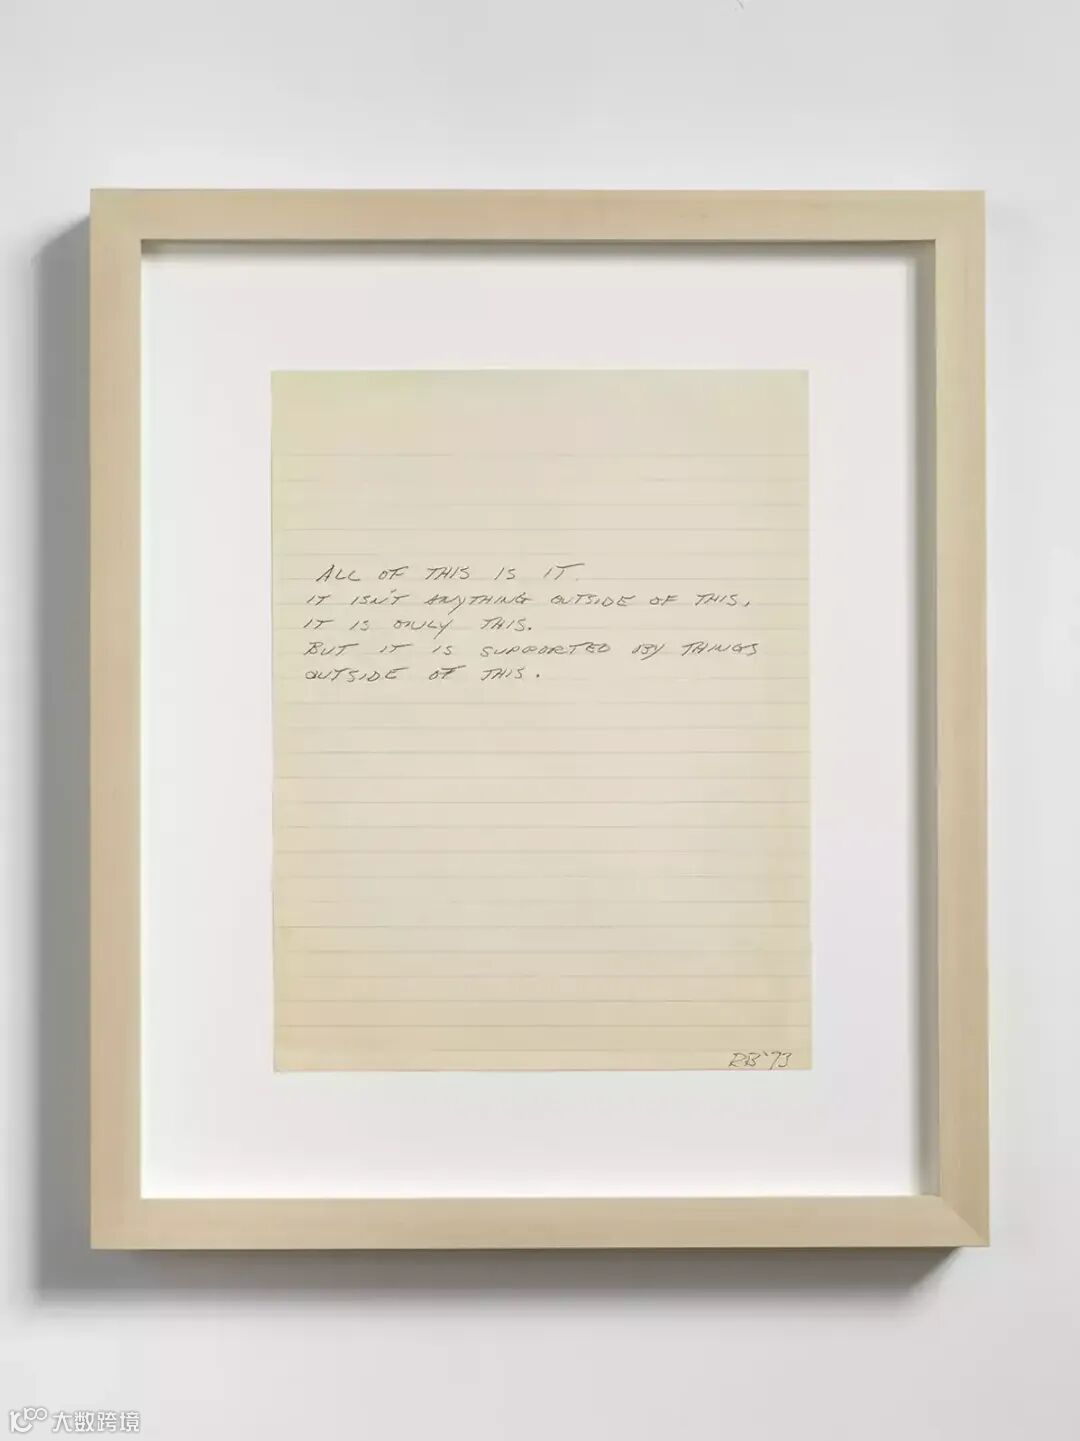 ALL OF THIS IS IT.
IT ISN'T ANYTHING OUTSIDE OF THIS.
IT IS ONLY THIS.
BUT IT IS SUPPORTED BY THINGS
OUTSIDE OF THIS.
RB '73
大数跨境